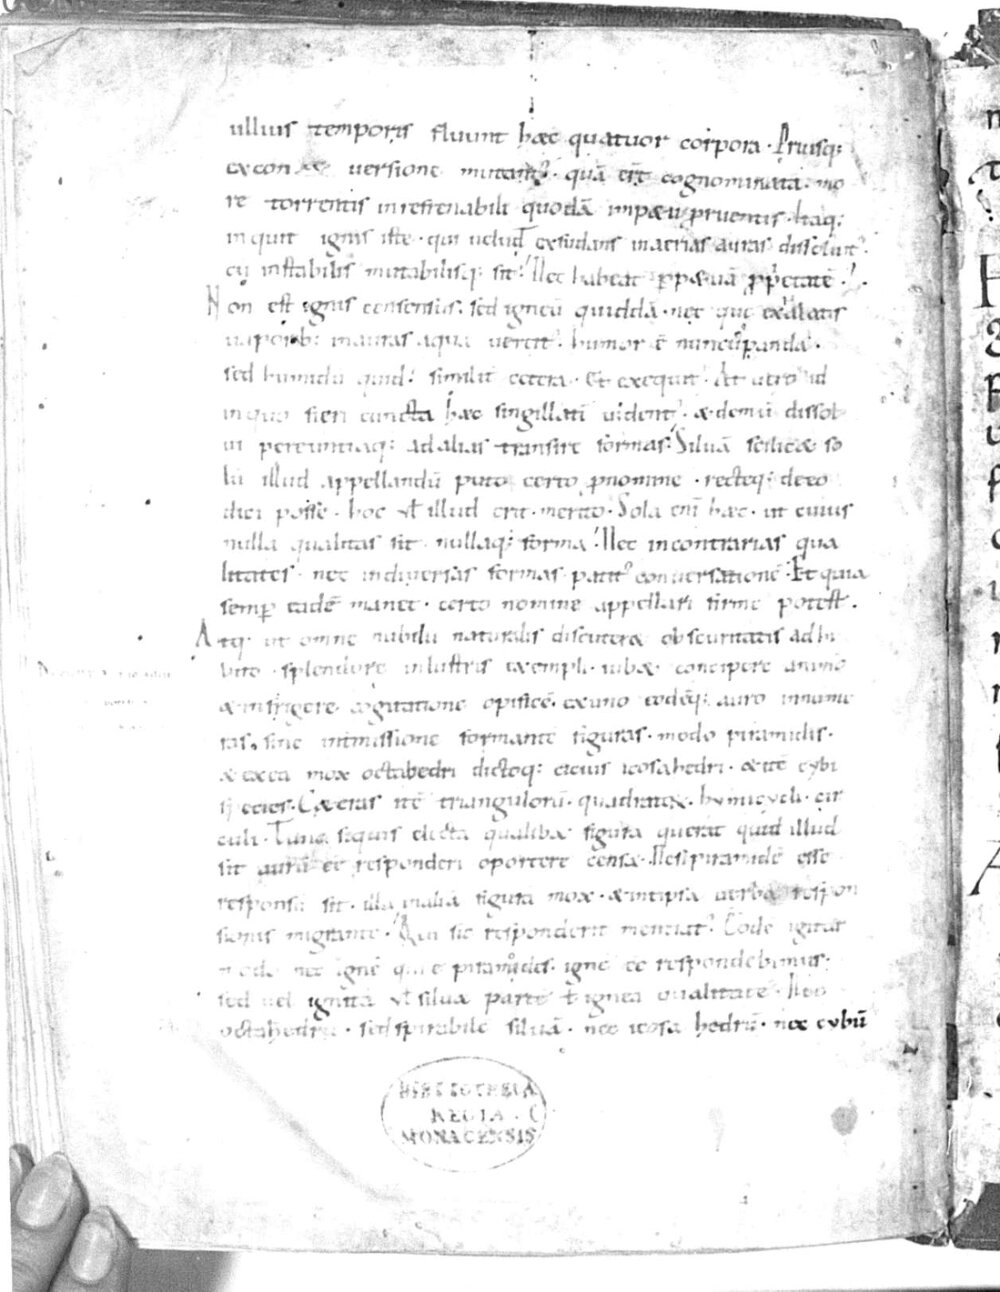 ullius temporis fluunt hæc quatuor corpora · Priusq:
excon versione mutant². quã erĩt cognominata. mo
re torrentis inrefrenabili quodã impetu pruentis · Itaq:
inquit ignis iste · qui uelud exsudans inaerias auras dissoluit².
cũ instabilis mutabilisq: sit! Nec habeat ppætuã ppetatẽ!
Non est ignis censensus. sed igneũ quiddã · nec qui exalatis
uaporib: inauras aqua uertit². humor ẽ nuncupanda ·
sed humidũ quid! similit cetera · Et exequit². At uero id
inquo fieri cuncta hæc singillatĩ uident² · & demũ dissol
ui pereuntiaq: ad alias transire formas. Siluã scilic& so
lũ illud appellandũ puto certo pnomine · recteq: deeo
dici posse · hoc ƚ illud erit · merito · Sola enĩ hæc · ut cuius
nulla qualitas sit · nullaq: forma! Nec incontrarias qua
litates · nec indiuersas formas patit² conuersationẽ · Et quia
semp eadẽ manet · certo nomine appellari firme potest .
Atq: ut omne nubilũ naturalis discuter& obscuritatis adhi
bito · splendore inlustris exempli · iub& concipere animo
& infigere cogitatione opificẽ · exuno eodẽq: auro innume
ras · sine intmissione formantẽ figuras · modo piramidis ·
& exea mox octahedri dictoq: citius icosahedri · & itẽ cybi
species · Cæteras itẽ triangulorũ · quadratorũ · hymicycli · cir
culi · Tunc siquis electa qualib& figura querat quid illud
sit aurũ ee responderi oportere cens& · Nesipiramidẽ esse
responsũ sit · illa inaliã figurã mox · & inipsa uerba respon
sionis migrante · Qui sic responderit mentiat². Eodẽ igitur
modo nec ignẽ qui e piramides · ignẽ ee respondebimus ·
sed uel ignitã ƚ siluæ partẽ ignea qualitate · Nec
octahedrũ · sed spirabilẽ siluã · nec icosa hedrũ · nec cybũ
BIBLIOTHECA
REGIA
MONACENSIS